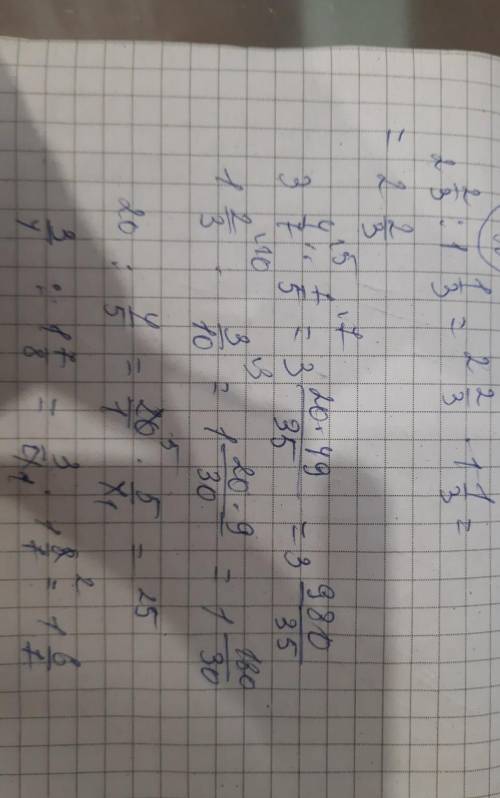 2 2/3 : 1 1/3 = 2 2/3 · 1 1/3 =
= 2 2/3
3 4/7 \5 : 7/5 \7 = 3 20·49/35 = 3 980/35
1 2/3 \10 · 3/10 \3 = 1 20·9/30 = 1 180/30
20 : 4/5 = 20/1 \5 · 5/4 1 = 25
3/4 : 1 7/8 = 3/4 1 · 1 8/7 2 = 1 6/7